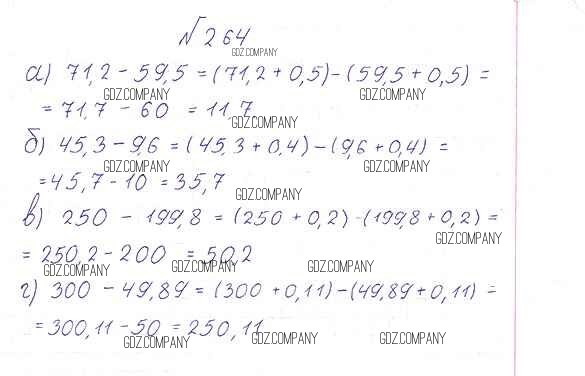 №264
GDZ.COMPANY
а) 71,2 - 59,5 = (71,2 + 0,5) - (59,5 + 0,5) =
GDZ.COMPANY GDZ.COMPANY
= 71,7 - 60 = 11,7
GDZ.COMPANY
б) 45,3 - 9,6 = (45,3 + 0,4) - (9,6 + 0,4) =
GDZ.COMPANY GDZ.COMPANY
= 45,7 - 10 = 35,7
GDZ.COMPANY
в) 250 - 199,8 = (250 + 0,2) - (199,8 + 0,2) =
GDZ.COMPANY
= 250,2 - 200 = 50,2
GDZ.COMPANY GDZ.COMPANY GDZ.COMPANY
г) 300 - 49,89 = (300 + 0,11) - (49,89 + 0,11) =
= 300,11 - 50 = 250,11
GDZ.COMPANY GDZ.COMPANY GDZ.COMPANY